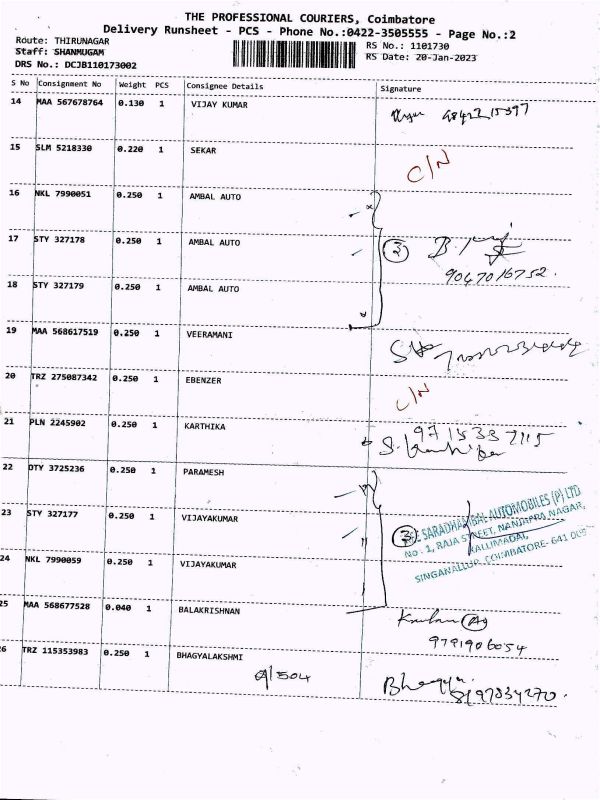 THE PROFESSIONAL COURIERS, Coimbatore
Delivery Runsheet - PCS - Phone No.:0422-3505555 - Page No.:2
Route: THIRUNAGAR
Staff: SHANMUGAM
DRS No.: DCJB110173002
RS No.: 1101730
RS Date: 20-Jan-2023
S No Consignment No Weight PCS Consignee Details Signature
14 MAA 567678764 0.130 1 VIJAY KUMAR
15 SLM 5218330 0.220 1 SEKAR C/N
16 NKL 7990051 0.250 1 AMBAL AUTO
17 STY 327178 0.250 1 AMBAL AUTO 3
9047016752.
18 STY 327179 0.250 1 AMBAL AUTO
19 MAA 568617519 0.250 1 VEERAMANI
20 TRZ 275087342 0.250 1 EBENZER C/N
21 PLN 2245902 0.250 1 KARTHIKA 9715337115
22 DTY 3725236 0.250 1 PARAMESH
23 STY 327177 0.250 1 VIJAYAKUMAR 3
SARADHAMBAL AUTOMOBILES (P) LTD
No. 1, RAJA STREET, NANJAPPA NAGAR,
KALLIMADAI,
SINGANALLUR, COIMBATORE- 641 005
24 NKL 7990059 0.250 1 VIJAYAKUMAR
25 MAA 568677528 0.040 1 BALAKRISHNAN
9791906054
26 TRZ 115353983 0.250 1 BHAGYALAKSHMI